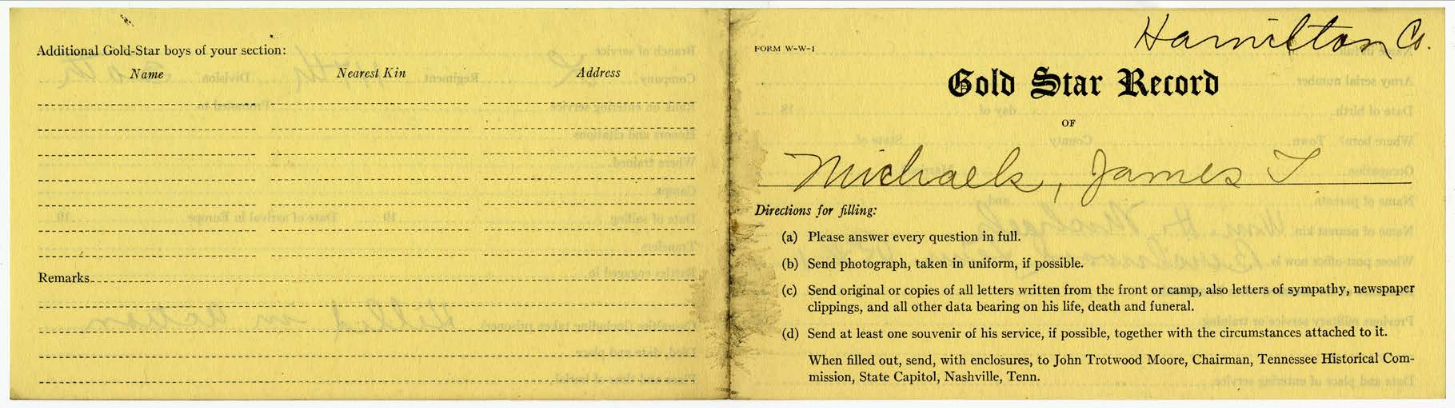 Additional Gold-Star boys of your section:
Name Nearest Kin Address
Remarks
Hamilton Co.
FORM W-W-1
Gold Star Record
OF
Michaels, James T
Directions for filling:
(a) Please answer every question in full.
(b) Send photograph, taken in uniform, if possible.
(c) Send original or copies of all letters written from the front or camp, also letters of sympathy, newspaper
clippings, and all other data bearing on his life, death and funeral.
(d) Send at least one souvenir of his service, if possible, together with the circumstances attached to it.
When filled out, send, with enclosures, to John Trotwood Moore, Chairman, Tennessee Historical Com-
mission, State Capitol, Nashville, Tenn.